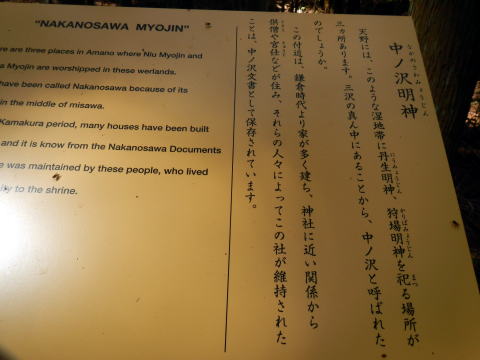 "NAKANOSAWA MYOJIN"
re are three places in Amano where Niu Myojin and
a Myojin are worshipped in these werlands.
have been called Nakanosawa because of its
in the middle of misawa.
Kamakura period, many houses have been built
and it is know from the Nakanosawa Documents
e was maintained by these people, who lived
ity to the shrine.
中ノ沢明神
なかのさわみょうじん
天野には、このような湿地帯に丹生明神、狩場明神を祀る場所が
にうみょうじん
かりばみょうじん
まつ
三カ所あります。三沢の真ん中にあることから、中ノ沢と呼ばれた
のでしょうか。
この付近は、鎌倉時代より家が多く建ち、神社に近い関係から
供僧や宮仕などが住み、それらの人々によってこの社が維持された
ことは、中ノ沢文書として保存されています。